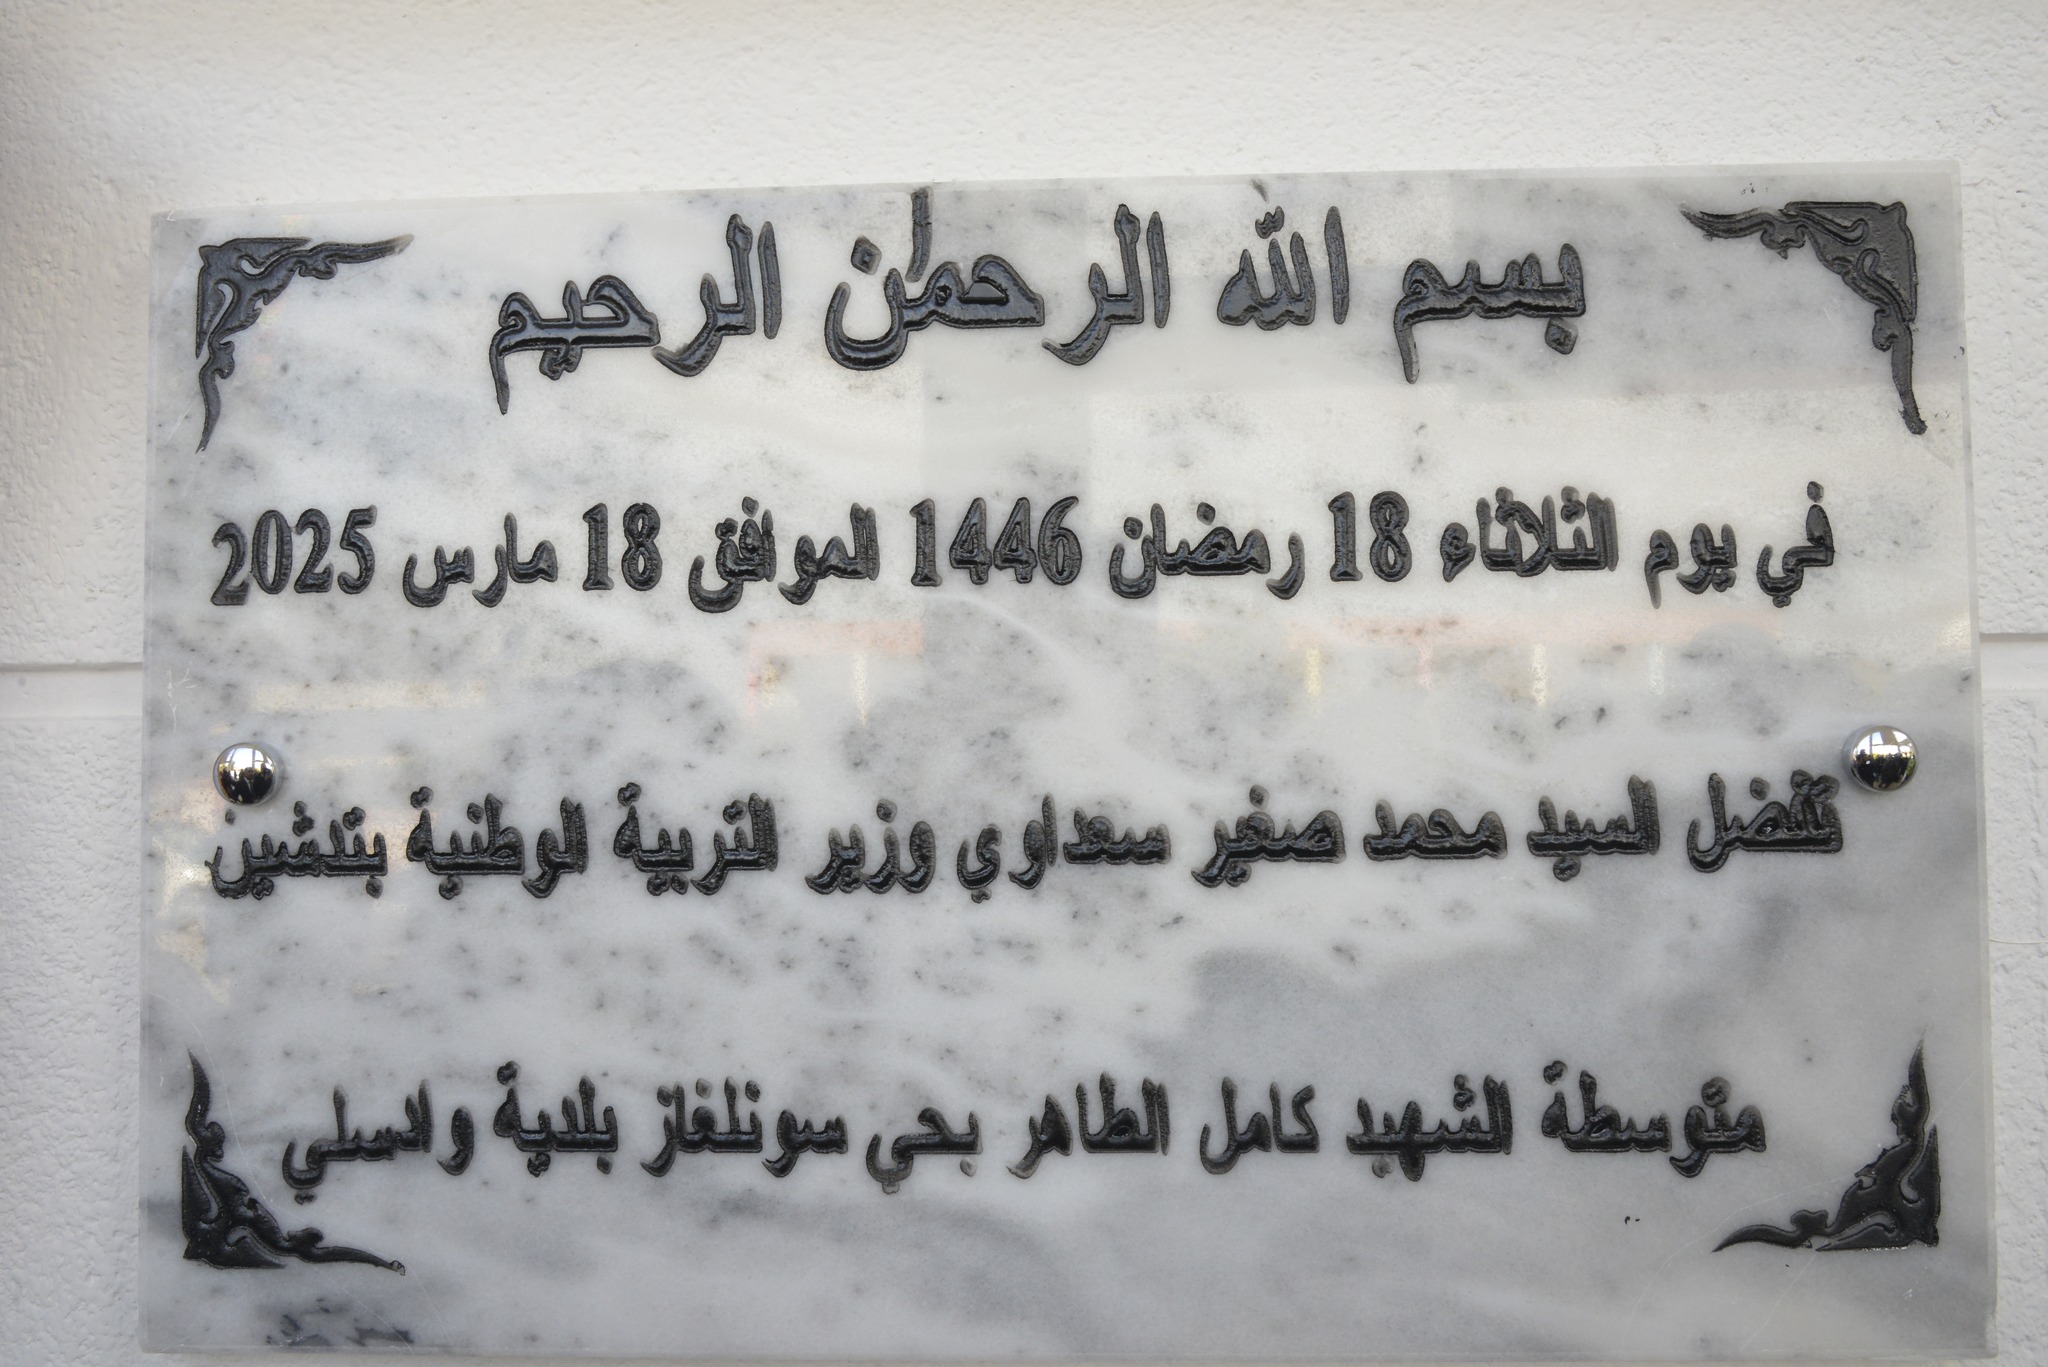 بسم الله الرحمان الرحيم
في يوم الثلاثاء 18 رمضان 1446 الموافق 18 مارس 2025
تفضل السيد محمد صغير سعداوي وزير التربية الوطنية بتدشين
متوسطة الشهيد كامل الطاهر بحي سونلغاز بلدية وادسلي